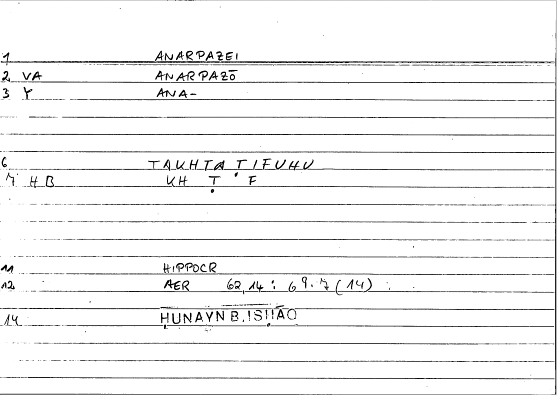 1 ANARPAZEI
2 VA ANARPAZŌ
3 Y ANA-
6 TAKHTAṬIFUHU
7 H B KH Ṭ F
11 HIPPOCR
12 AER 62,14 : 69.7 (14)
14 ḤUNAYN B. ISḤĀQ